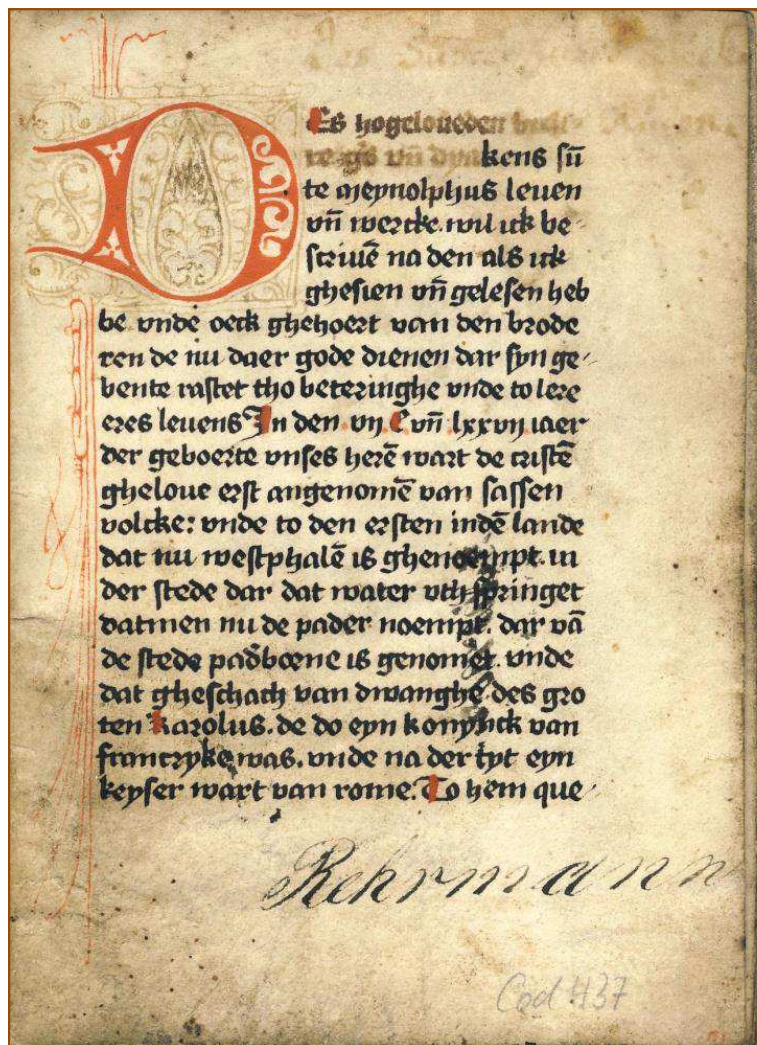 DEs hogeloueden
kens sū
te meynolphus leuen
vn̄ wercke. wil ick be
scriuē na den als ick
ghesien vn̄ gelesen heb
be vnde oeck ghehoert van den brode
ren de nu daer gode dienen dar syn ge-
bente rastet tho beteringhe vnde to lere
eres leuens In den vij C vn̄ lxxvij iaer
der geboerte vnses herē wart de cristē
gheloue erst angenomē van sassen
volcke: vnde to den ersten indē lande
dat nu westphalē is ghenoempt. in
der stede dar dat water vth springet
datmen nu de pader noempt. dar vā
de stede pad̄borne is genomet. vnde
dat gheschach van dwanghe des gro
ten karolus. de do eyn konynck van
francryke was. vnde na der tyt eyn
keyser wart van rome. To hem que-
Rehrmann
Cod 437